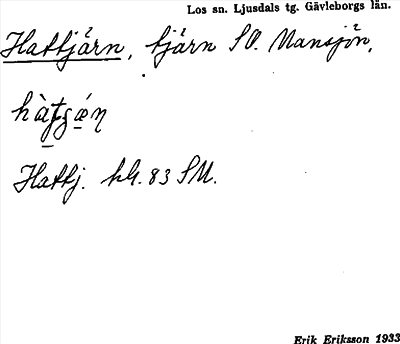 Los sn. Ljusdals tg. Gävleborgs län.
Hattjärn, tjärn SO. Mansjön,
Hattj. kh. 83 SM.
Erik Eriksson 1933